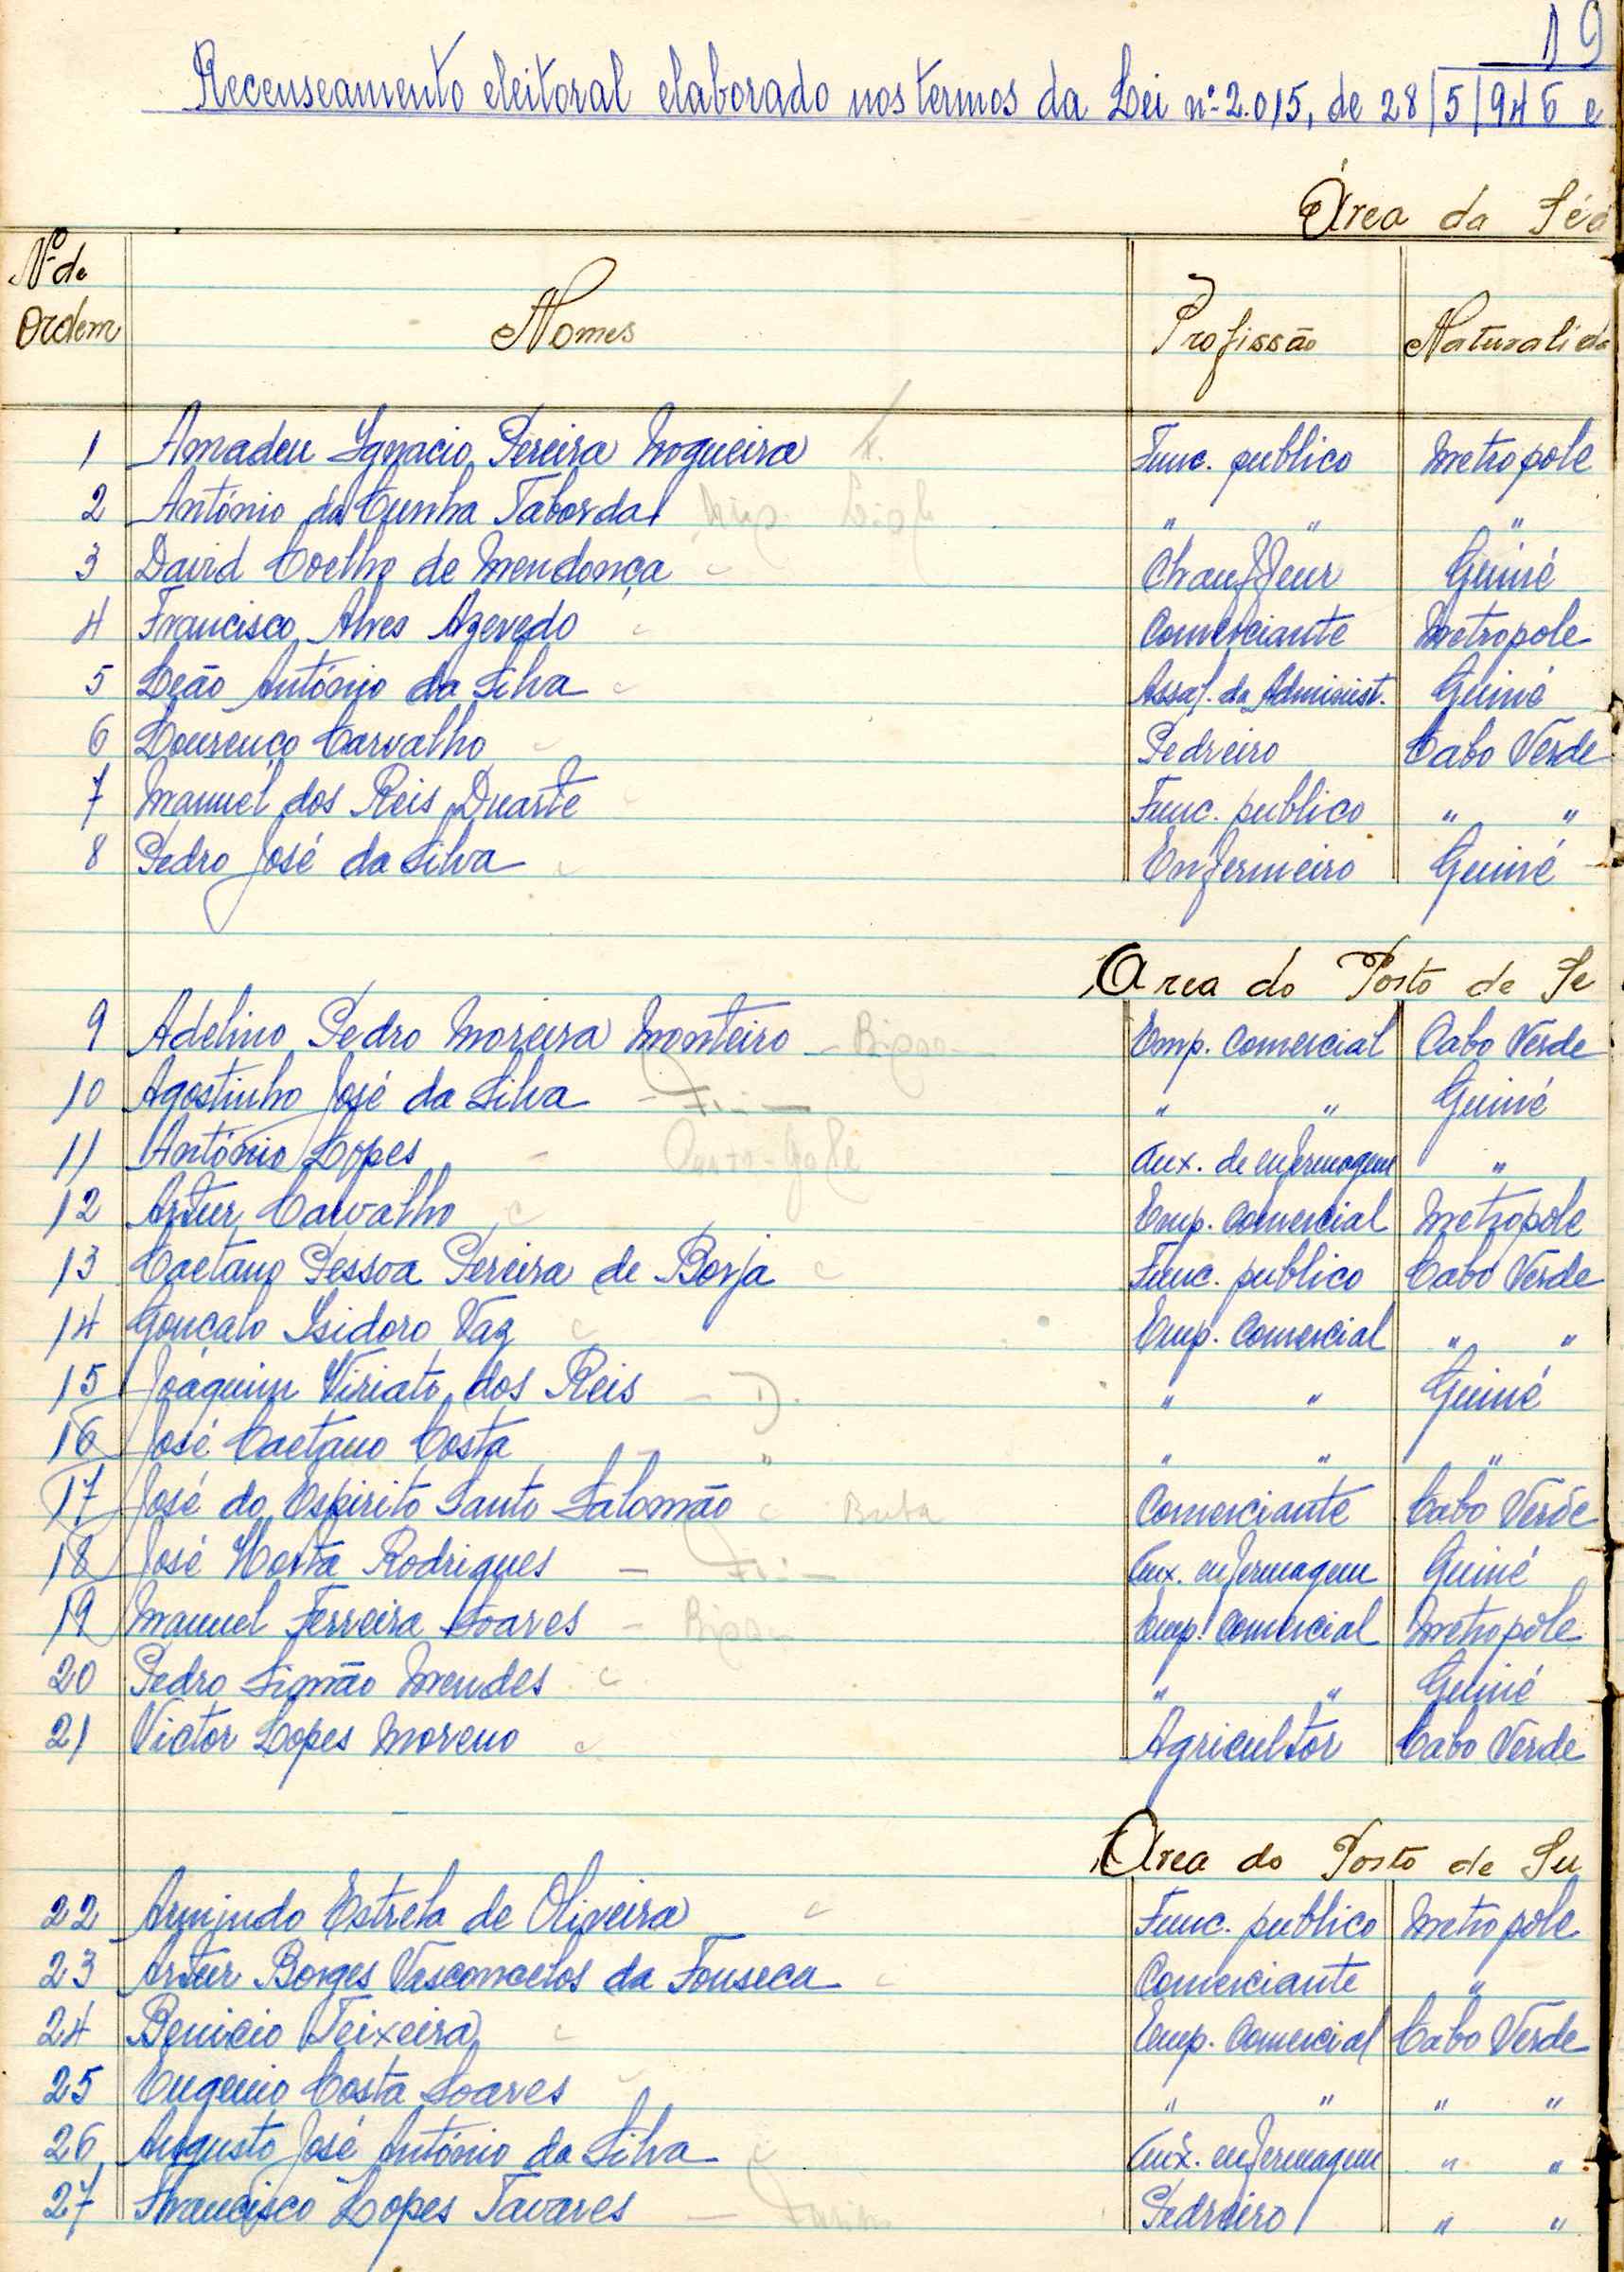 19
Recenseamento eleitoral elaborado nos termos da Lei nº 2.015, de 28/5/946 e
Área da Séd
Nº de Ordem Nomes Profissão Naturalida
1 Amadeu Ignacio Pereira Nogueira Func. publico Metropole
2 António da Cunha Taborda " " "
3 David Coelho de Mendonça Chauffeur Guiné
4 Francisco Alves Azevedo Comerciante Metropole
5 Leão António da Silva Assal. da Administ. Guiné
6 Lourenço Carvalho Pedreiro Cabo Verde
7 Manuel dos Reis Duarte Func. publico " "
8 Pedro José da Silva Enfermeiro Guiné
Area do Posto de Se
9 Adelino Pedro Moreira Monteiro Emp. Comercial Cabo Verde
10 Agostinho José da Silva " " Guiné
11 António Lopes Aux. de enfermagem "
12 Artur Carvalho Emp. Comercial Metropole
13 Caetano Pessoa Pereira de Borja Func. publico Cabo Verde
14 Gonçalo Isidoro Vaz Emp. Comercial " "
15 Joaquim Viriato dos Reis - D. " " Guiné
16 José Caetano Costa - " " " "
17 José do Espirito Santo Salomão Buba Comerciante Cabo Verde
18 José Horta Rodrigues Aux. enfermagem Guiné
19 Manuel Ferreira Soares Emp. Comercial Metropole
20 Pedro Simão Mendes " " Guiné
21 Victor Lopes Moreno Agricultor Cabo Verde
Area do Posto de Su
22 Armindo Estrela de Oliveira Func. publico Metropole
23 Artur Borges Vasconcelos da Fonseca Comerciante "
24 Benicio Teixeira Emp. Comercial Cabo Verde
25 Eugenio Costa Soares " " " "
26 Augusto José António da Silva Aux. enfermagem " "
27 Francisco Lopes Tavares Pedreiro " "